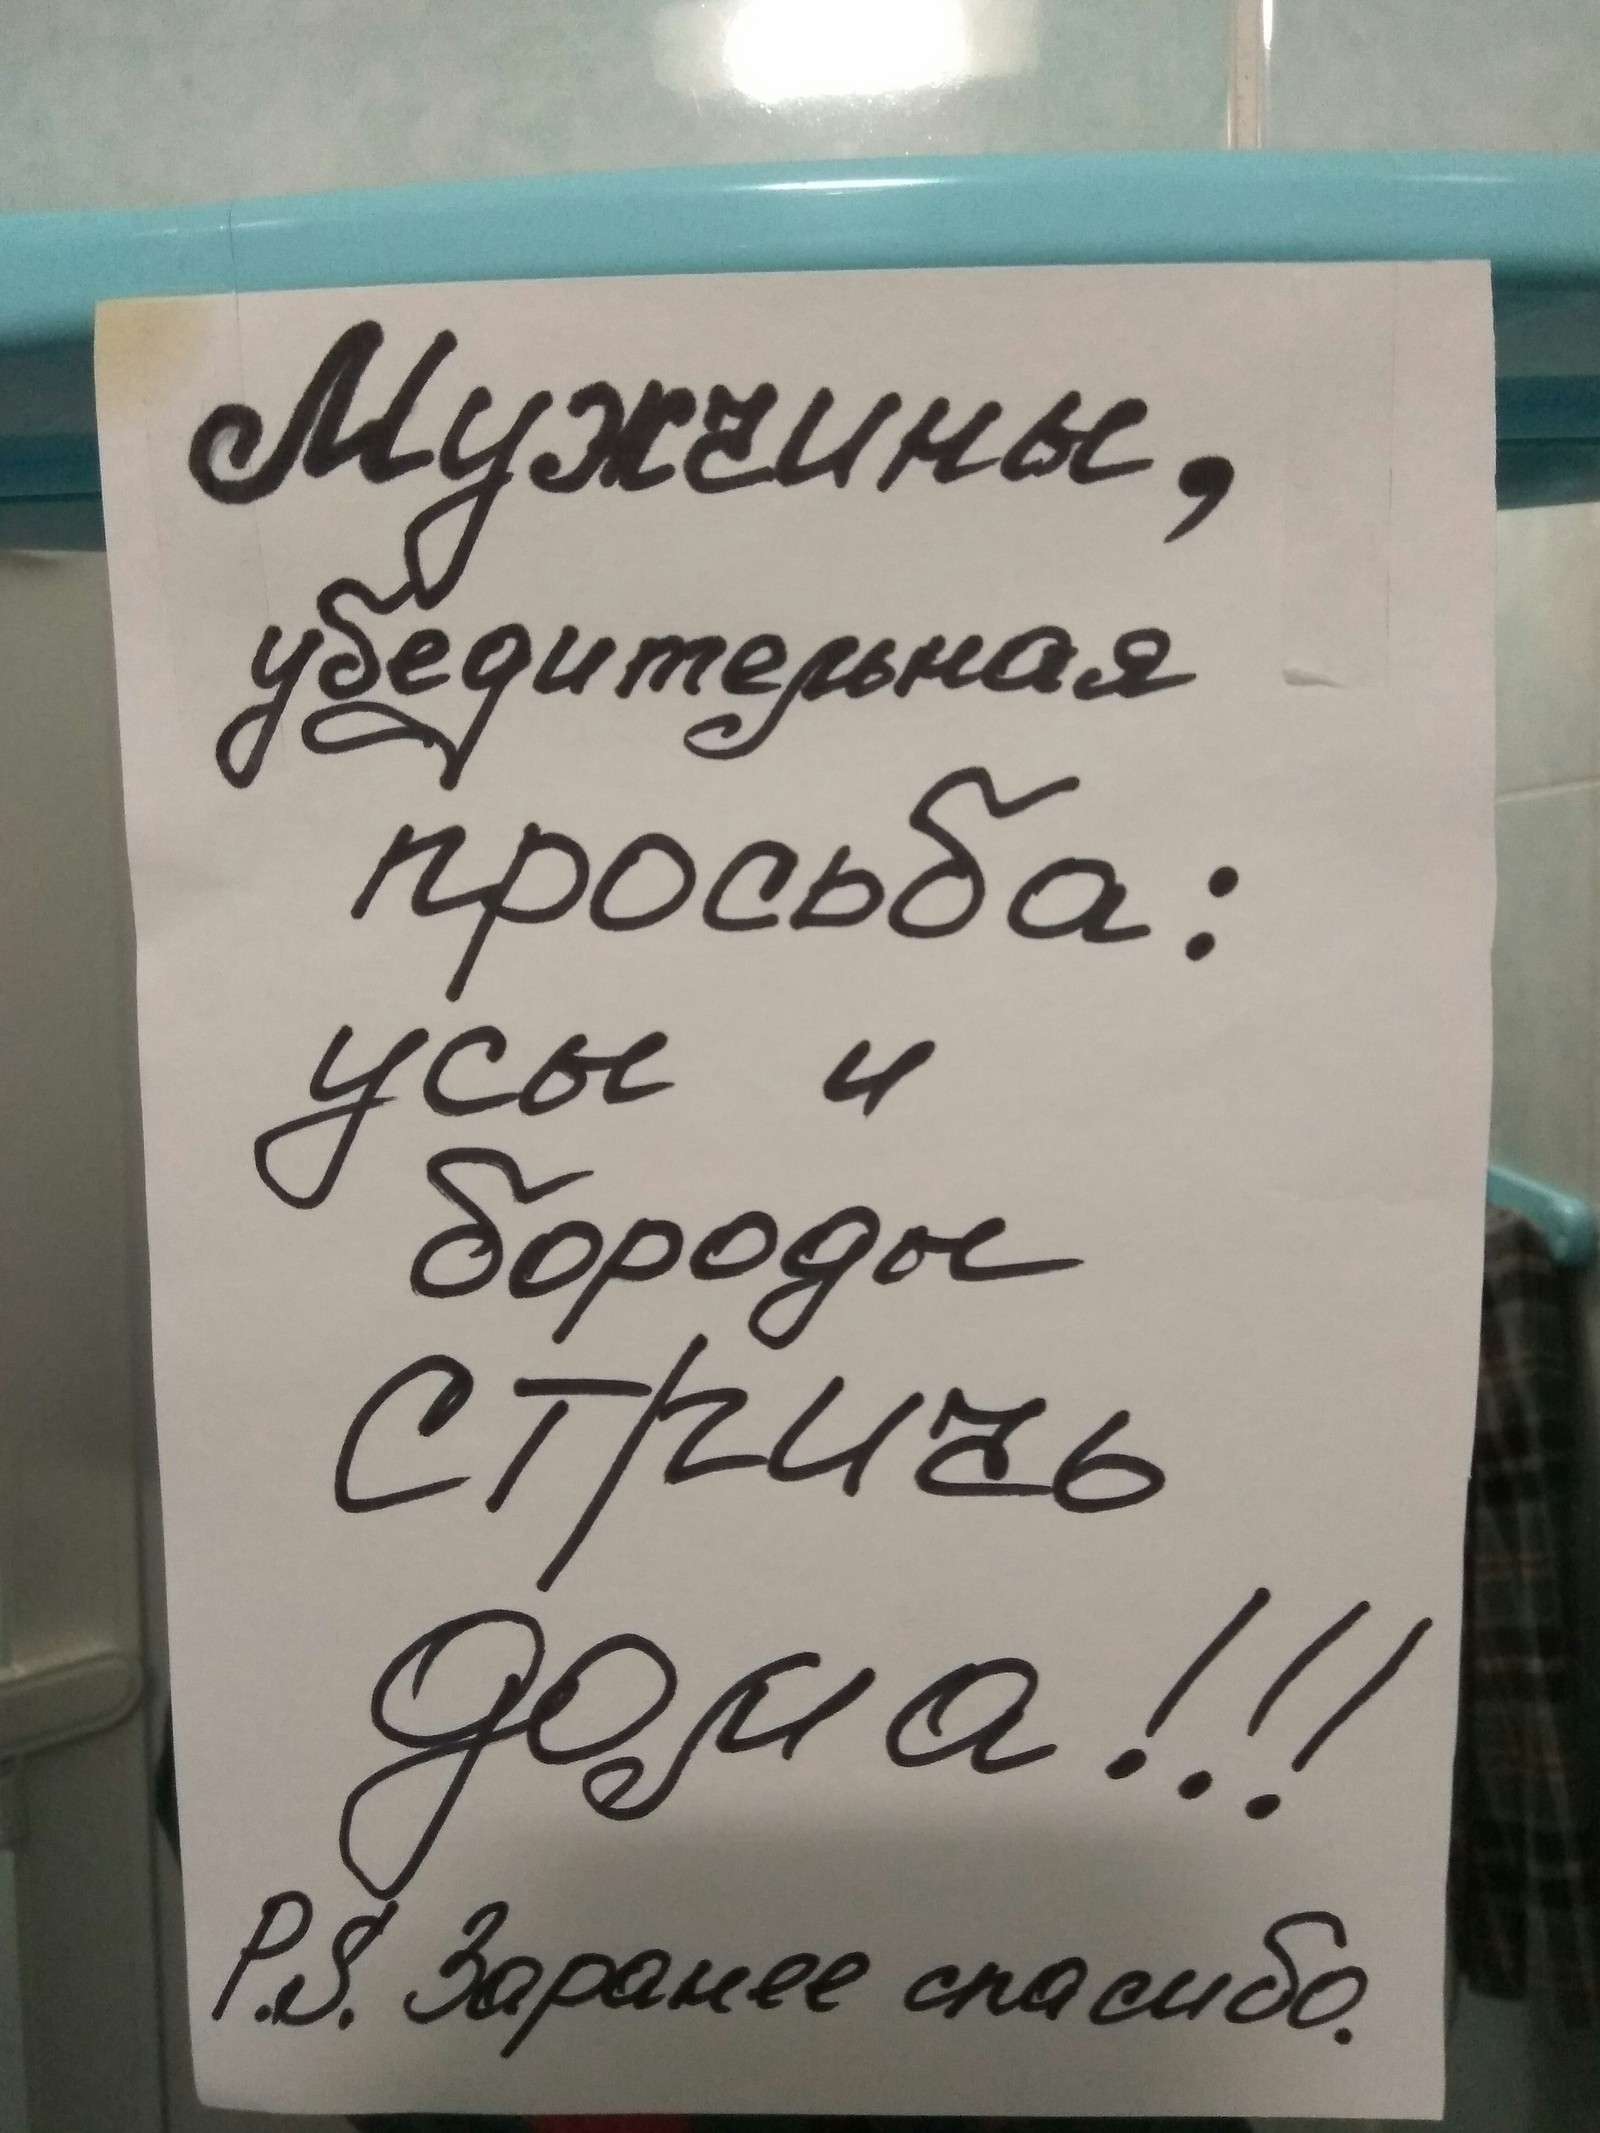 Мужчины,
убедительная
просьба:
усы и
бороды
стричь
дома!!!
P.S. Заранее спасибо.